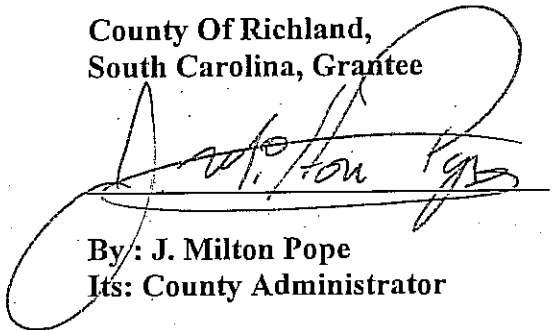 County Of Richland,
South Carolina, Grantee
J. Milton Pope
By: J. Milton Pope
Its: County Administrator